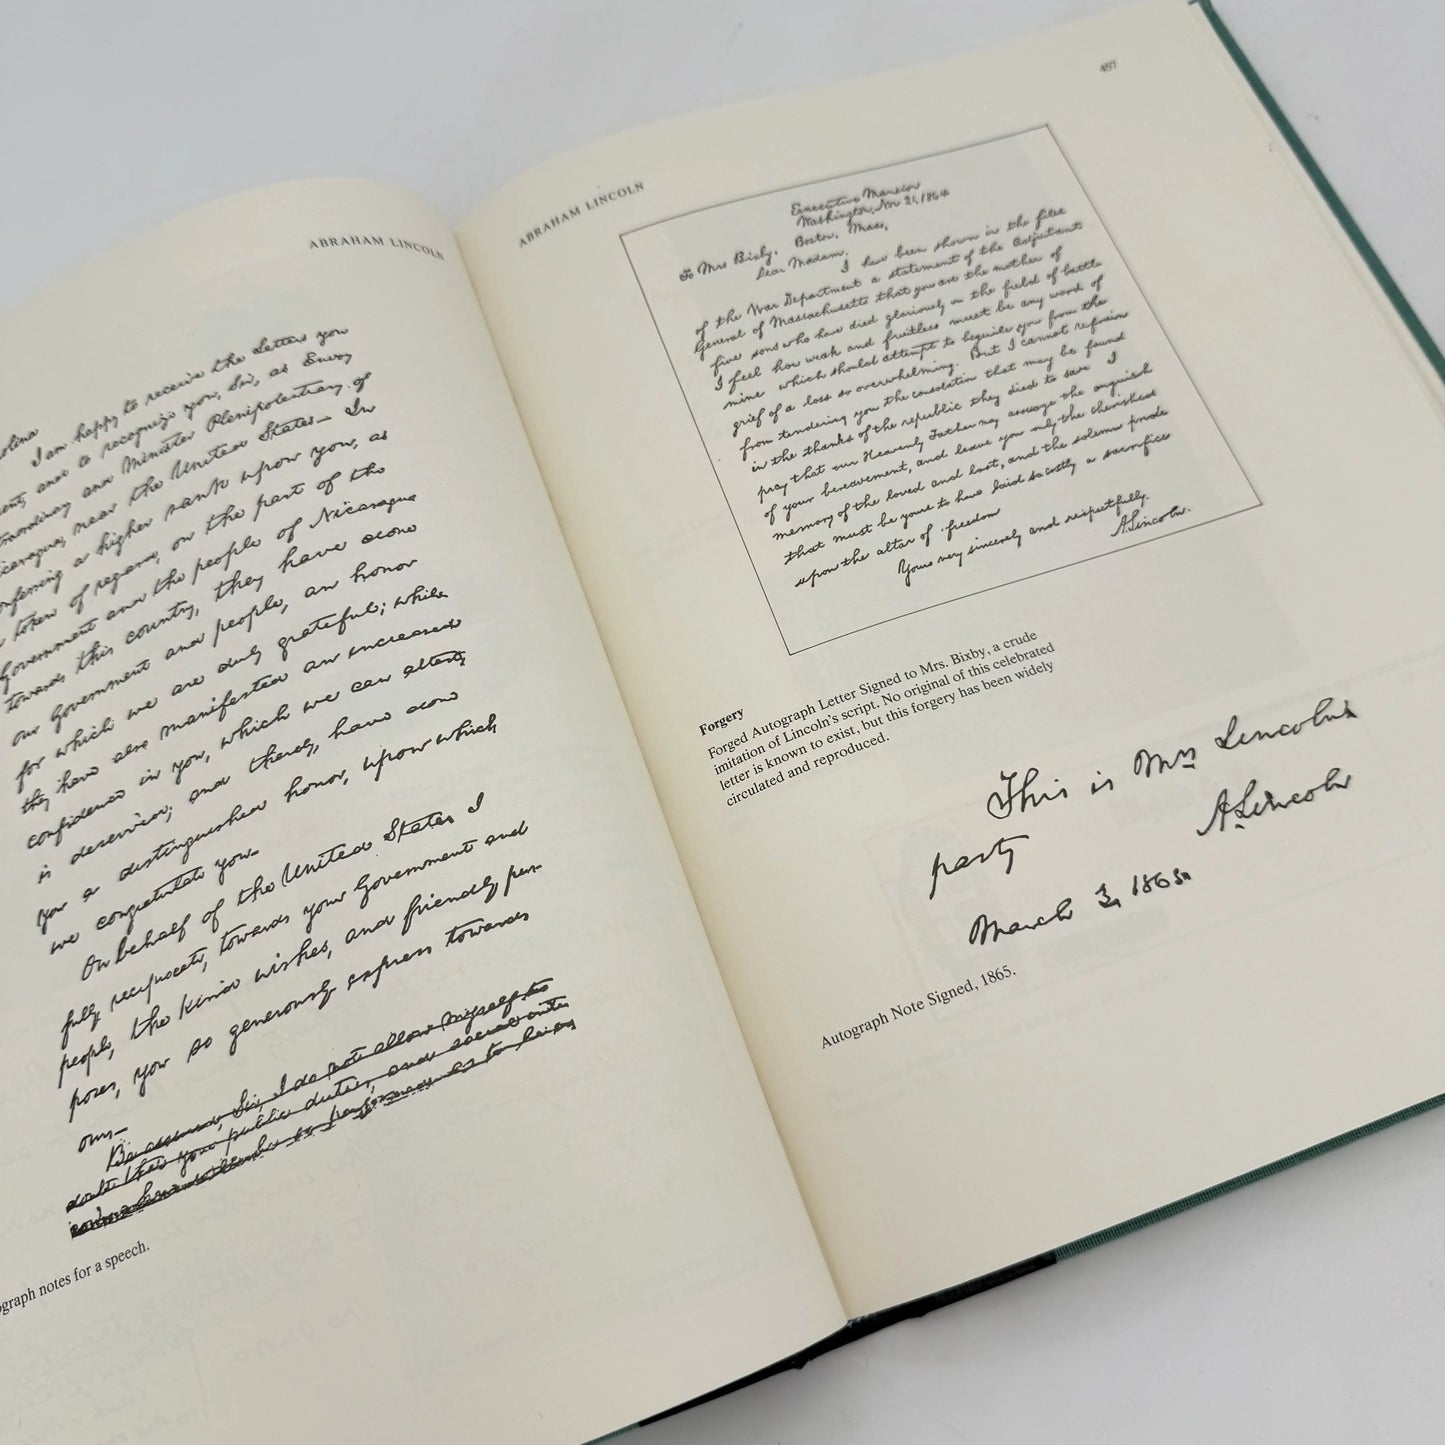 ABRAHAM LINCOLN
I am happy to receive the Letters you
and to recognize you, Sir, as Envoy
and Minister Plenipotentiary of
near the United States— In
a higher rank upon you, as
token of regard, on the part of the
Government and the people of Nicaragua
towards this country, they have done
our Government and people, an honor
for which we are duly grateful; while
they have also manifested an increased
confidence in you, which we can attest,
is deserved; and thereby, have done
you a distinguished honor, upon which
we congratulate you—
On behalf of the United States I
fully reciprocate, towards your Government and
people, the kind wishes, and friendly pur-
poses, you so generously express towards
ours—
Be assured, Sir, I do not allow myself to
doubt that your public duties, and social inter
ograph notes for a speech.
ABRAHAM LINCOLN
487
Executive Mansion
Washington, Nov 21, 1864
To Mrs Bixby, Boston, Mass,
Dear Madam.
I have been shown in the files
of the War Department a statement of the Adjutant
General of Massachusetts that you are the mother of
five sons who have died gloriously on the field of battle
I feel how weak and fruitless must be any word of
mine which should attempt to beguile you from the
grief of a loss so overwhelming. But I cannot refrain
from tendering you the consolation that may be found
in the thanks of the republic they died to save I
pray that our Heavenly Father may assuage the anguish
of your bereavement, and leave you only the cherished
memory of the loved and lost, and the solemn pride
that must be yours to have laid so costly a sacrifice
upon the altar of freedom
Yours very sincerely and respectfully.
A. Lincoln.
Forgery
Forged Autograph Letter Signed to Mrs. Bixby, a crude
imitation of Lincoln's script. No original of this celebrated
letter is known to exist, but this forgery has been widely
circulated and reproduced.
This is Mrs Lincoln's
party A. Lincoln
March 3, 1865.
Autograph Note Signed, 1865.